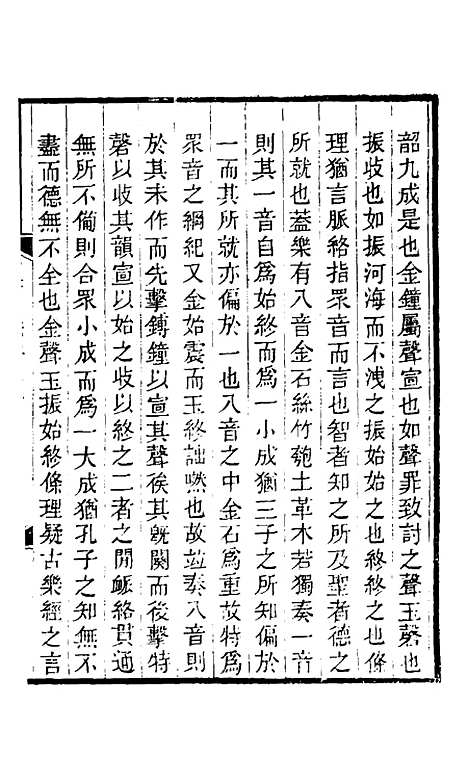 韶九成是也金鐘屬聲宣也如聲罪致討之聲玉磬也
振收也如振河海而不洩之振始始之也終終之也條
理猶言脈絡指眾音而言也智者知之所及聖者德之
所就也葢樂有八音金石絲竹匏土革木若獨奏一音
則其一音自爲始終而爲一小成猶三子之所知偏於
一而其所就亦偏於一也八音之中金石爲重故特爲
眾音之綱紀又金始震而玉終詘然也故並奏八音則
於其未作而先擊鎛鐘以宣其聲俟其旣闋而後擊特
磬以收其韻宣以始之收以終之二者之閒脈絡貫通
無所不備則合眾小成而爲一大成猶孔子之知無不
盡而德無不全也金聲玉振始終條理疑古樂經之言